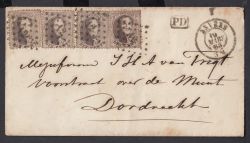 PD
Mejufvrouw J H A van Tregt
voorstraat over de Munt
Dordrecht